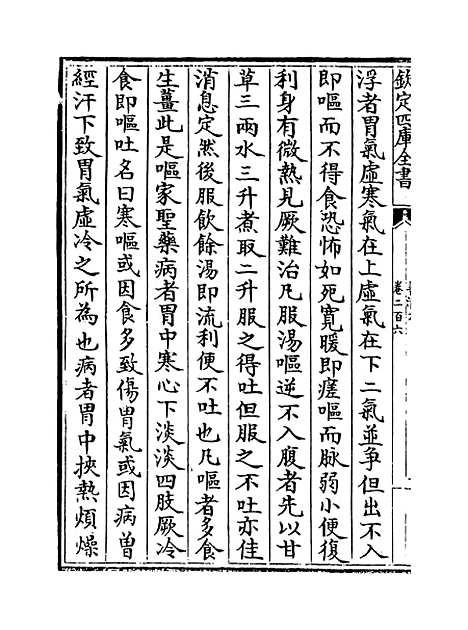 欽定四庫全書
卷二百六
浮者胃氣虛寒氣在上虛氣在下二氣並争但出不入
即嘔而不得食恐怖如死寛暖即瘥嘔而脉弱小便復
利身有微熱見厥難治凡服湯嘔逆不入腹者先以甘
草三兩水三升煮取二升服之得吐但服之不吐亦佳
消息定然後服飲餘湯即流利便不吐也凡嘔者多食
生薑此是嘔家聖藥病者胃中寒心下淡淡四肢厥冷
食即嘔吐名曰寒嘔或因食多致傷胃氣或因病曽
經汗下致胃氣虛冷之所為也病者胃中挾熱煩燥